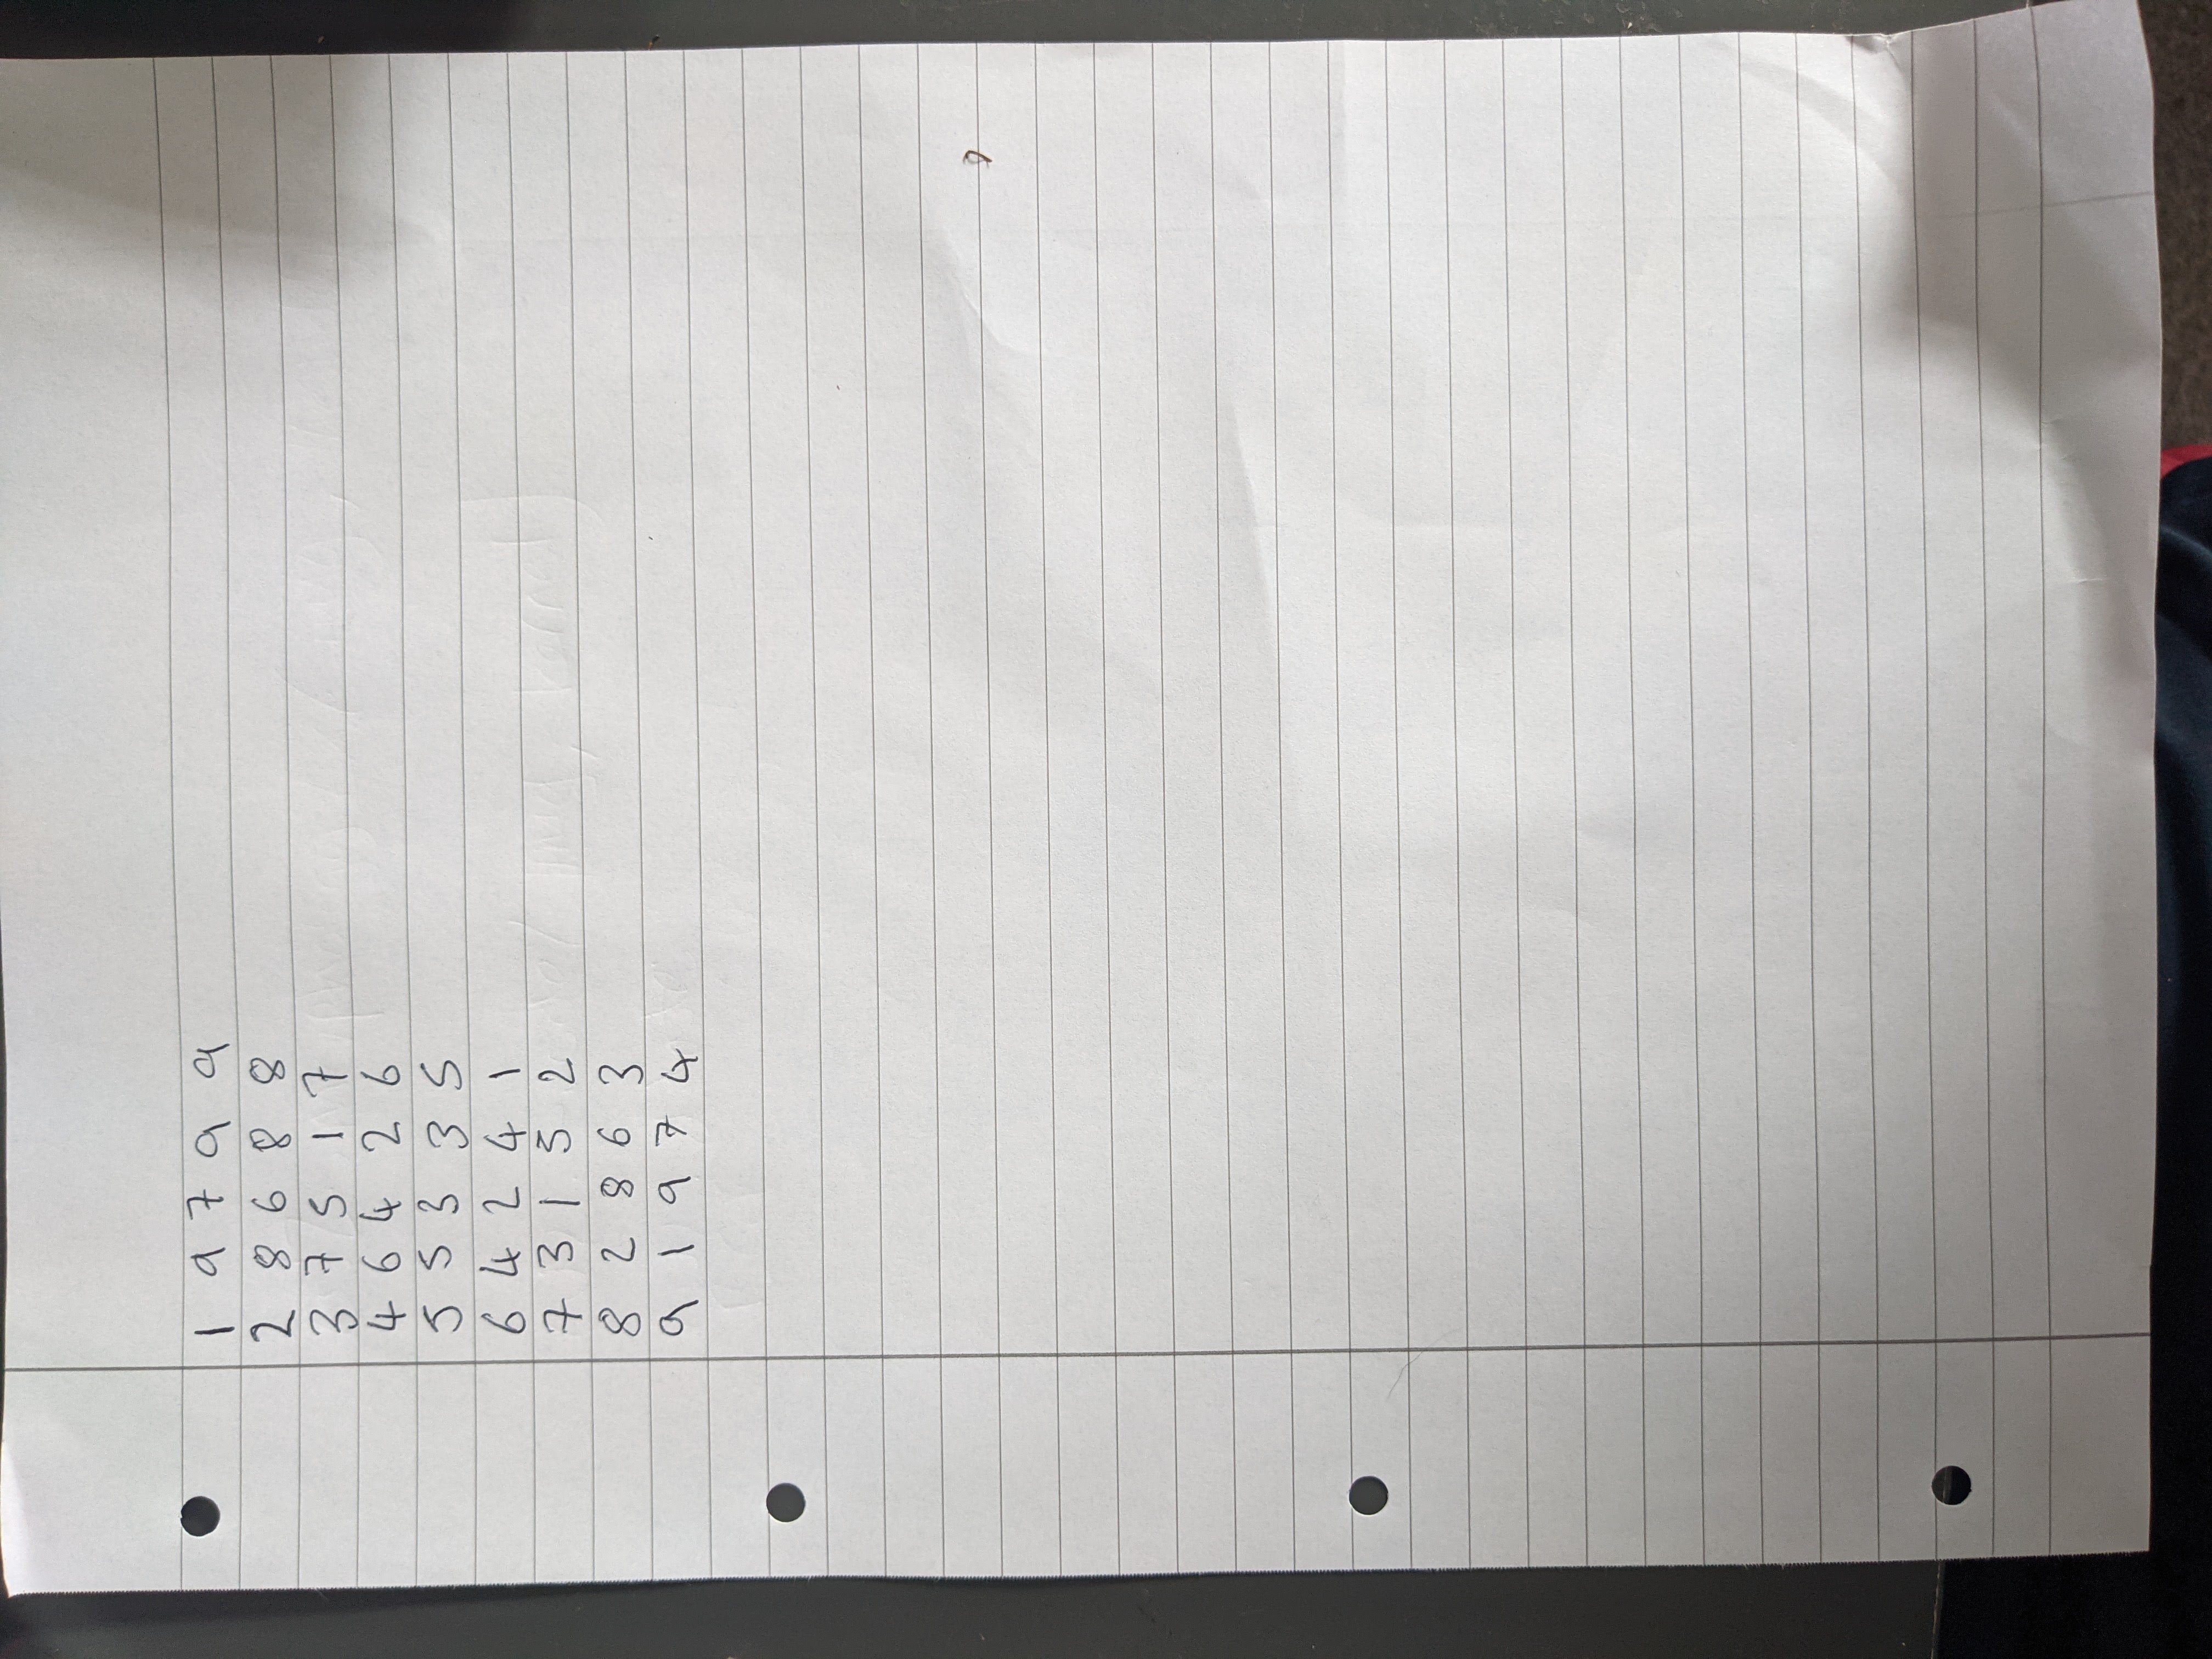 1 9 7 9 9
2 8 6 8 8
3 7 5 1 7
4 6 4 2 6
5 5 3 3 5
6 4 2 4 1
7 3 1 5 2
8 2 8 6 3
9 1 9 7 4